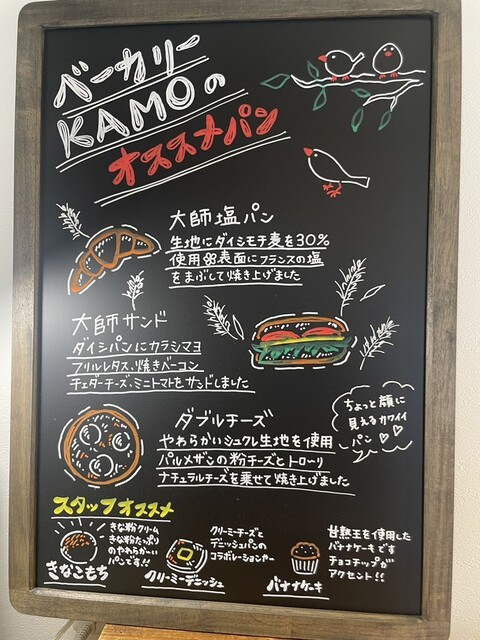 ベーカリー
KAMOの
オススメパン
大師塩パン
生地にダイシモチ麦を30%
使用 表面にフランスの塩
をまぶして焼き上げました
大師サンド
ダイシパンにカラシマヨ
フリルレタス、焼きベーコン
チェダーチーズ、ミニトマトをサンドしました
ちょっと顔に
見えるカワイイ
パン♡♡
ダブルチーズ
やわらかいシュクレ生地を使用
パルメザンの粉チーズとトローリ
ナチュラルチーズを乗せて焼き上げました
スタッフオススメ
きな粉クリーム
きな粉たっぷり
のやわらかーい
パンです!!
きなこもち
クリーミーチーズと
デニッシュパンの
コラボレーションやー
クリーミーデニッシュ
甘熟王を使用した
バナナケーキです
チョコチップが
アクセント!!
バナナケーキ